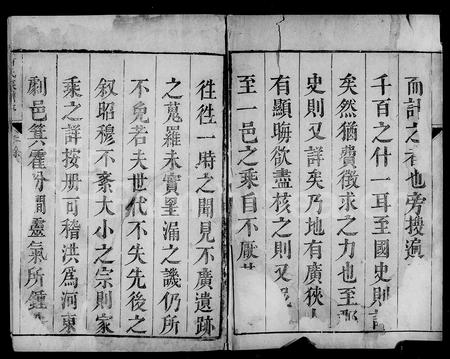 而計之者也旁搜遠
千百之什一耳至國史則詳
矣然猶費徵求之力也至郡
史則又詳矣乃地有廣狹人
有顯晦欲盡核之則又
至一邑之乘自不厭其
徃徃一時之聞見不廣遺跡
之蒐羅未實罣漏之譏仍所
不免若夫世代不失先後之
叙昭穆不紊大小之宗則家
乘之詳按册可稽洪爲河東
劇邑箕霍分間靈氣所鍾